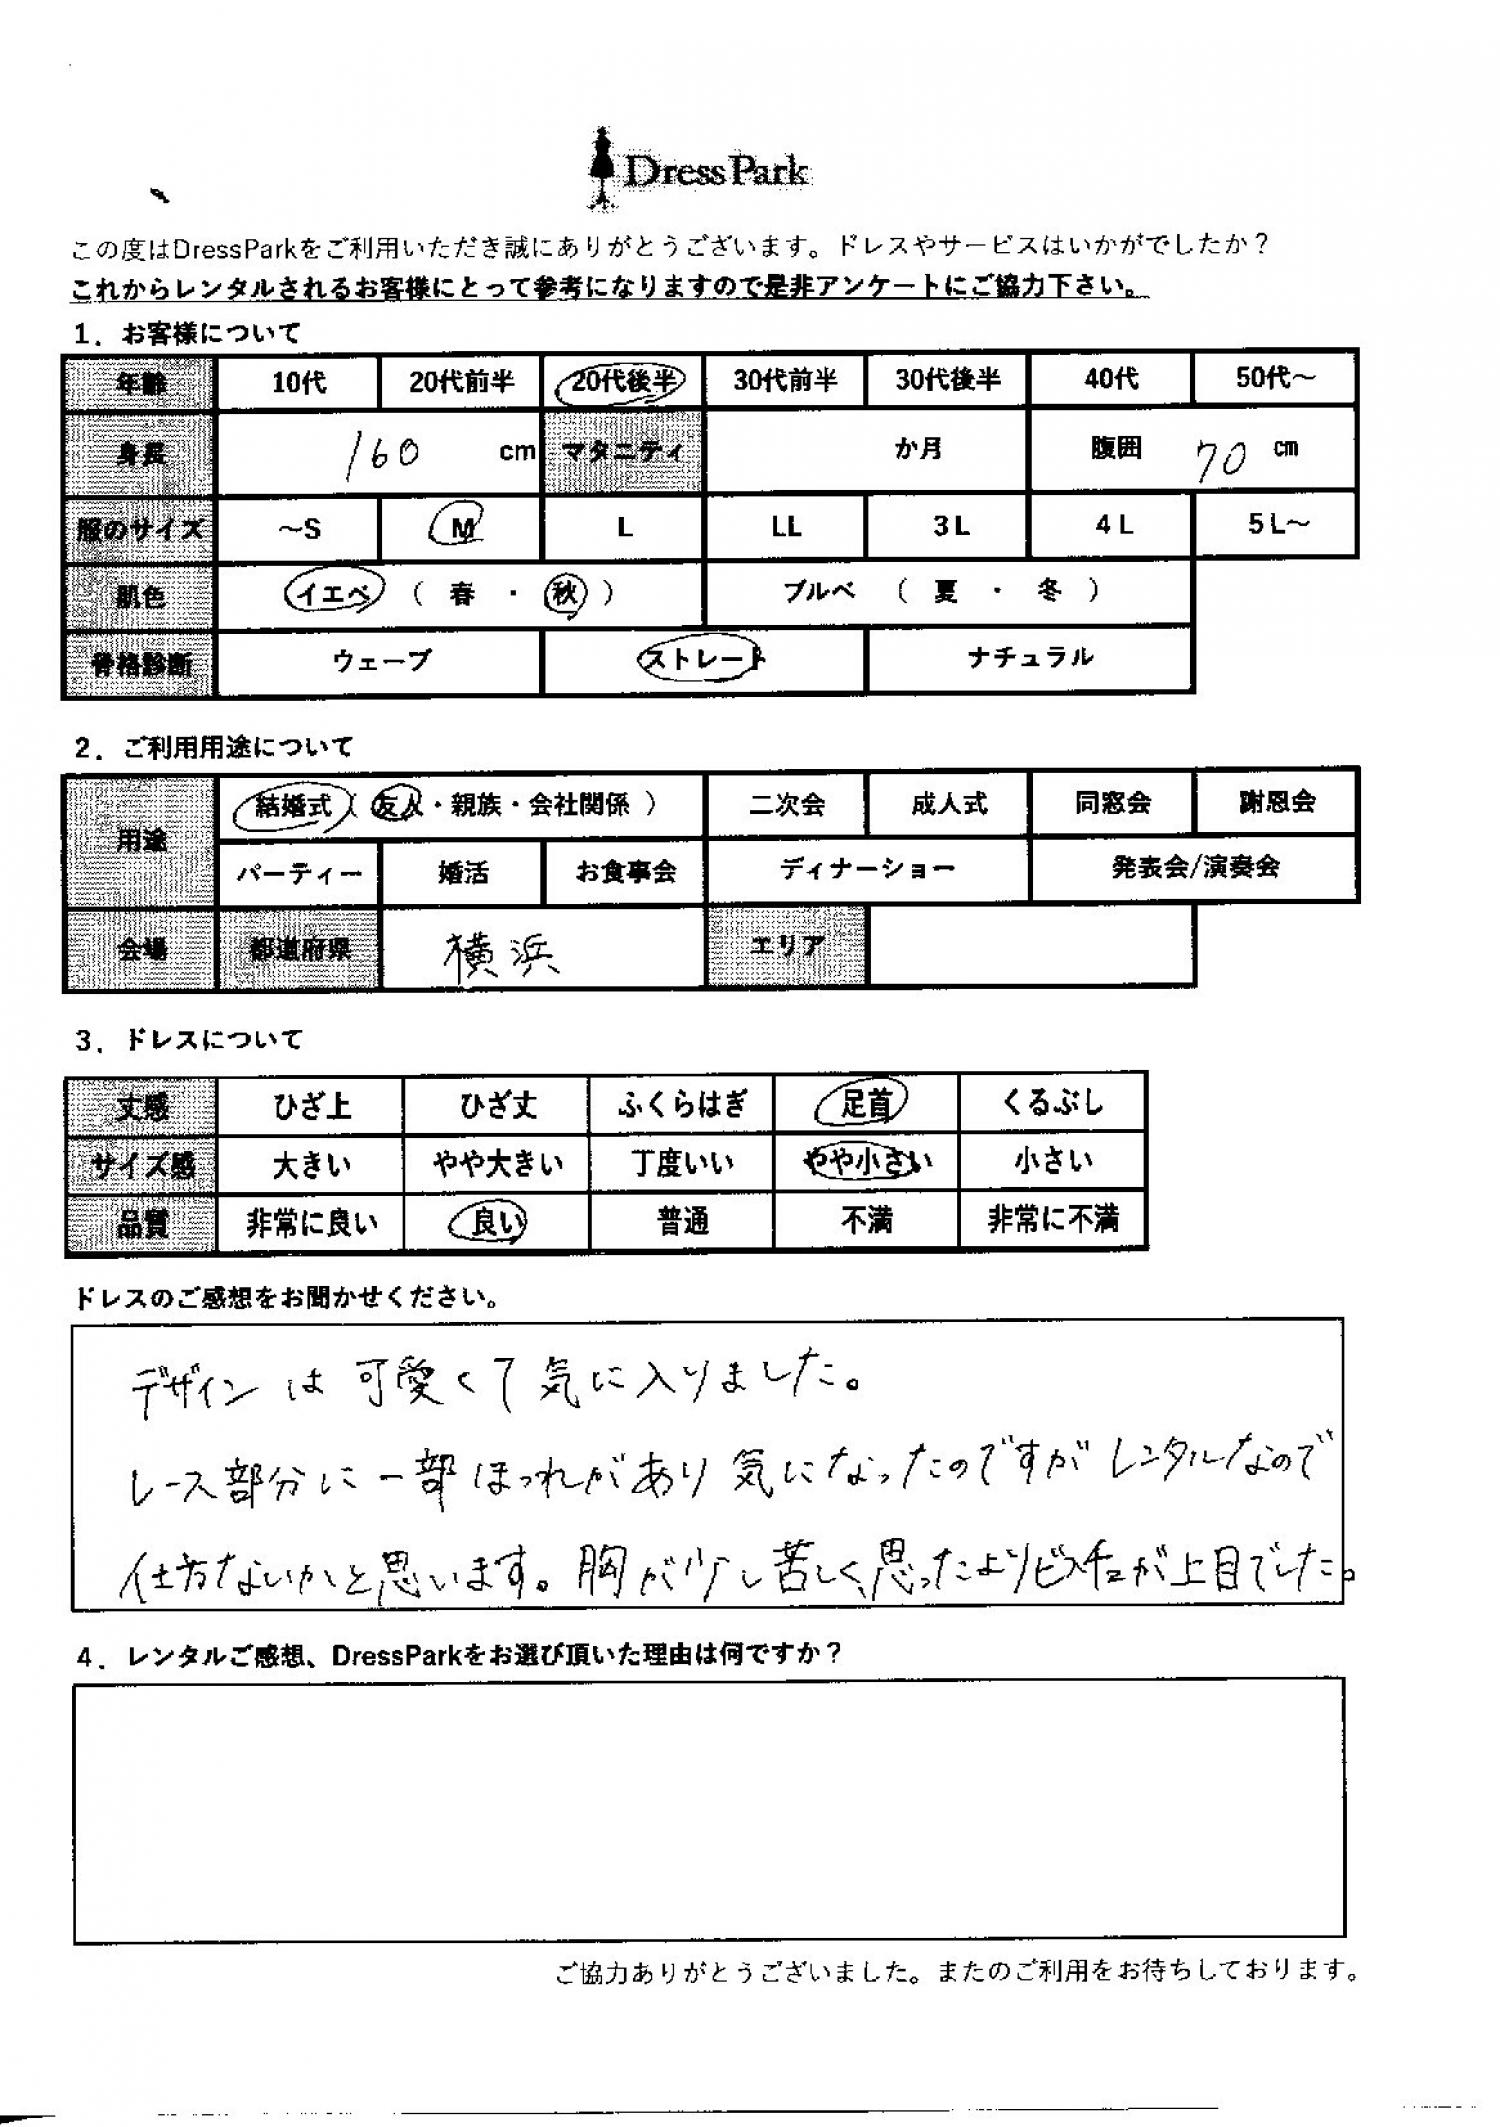 DressPark
この度はDressParkをご利用いただき誠にありがとうございます。ドレスやサービスはいかがでしたか？
これからレンタルされるお客様にとって参考になりますので是非アンケートにご協力下さい。
1．お客様について
年齢 10代 20代前半 20代後半 30代前半 30代後半 40代 50代～
身長 160 cm マタニティ か月 腹囲 70 cm
服のサイズ ～S M L LL 3L 4L 5L～
肌色 イエベ（ 春 ・ 秋 ） ブルベ （ 夏 ・ 冬 ）
骨格診断 ウェーブ ストレート ナチュラル
2．ご利用用途について
用途 結婚式（ 友人・親族・会社関係 ） 二次会 成人式 同窓会 謝恩会
パーティー 婚活 お食事会 ディナーショー 発表会/演奏会
会場 都道府県 横浜 エリア
3．ドレスについて
丈感 ひざ上 ひざ丈 ふくらはぎ 足首 くるぶし
サイズ感 大きい やや大きい 丁度いい やや小さい 小さい
品質 非常に良い 良い 普通 不満 非常に不満
ドレスのご感想をお聞かせください。
デザインは可愛くて気に入りました。
レース部分に一部ほつれがあり気になったのですがレンタルなので
仕方ないかと思います。胸が少し苦しく、思ったよりビスチェが上目でした。
4．レンタルご感想、DressParkをお選び頂いた理由は何ですか？
ご協力ありがとうございました。またのご利用をお待ちしております。